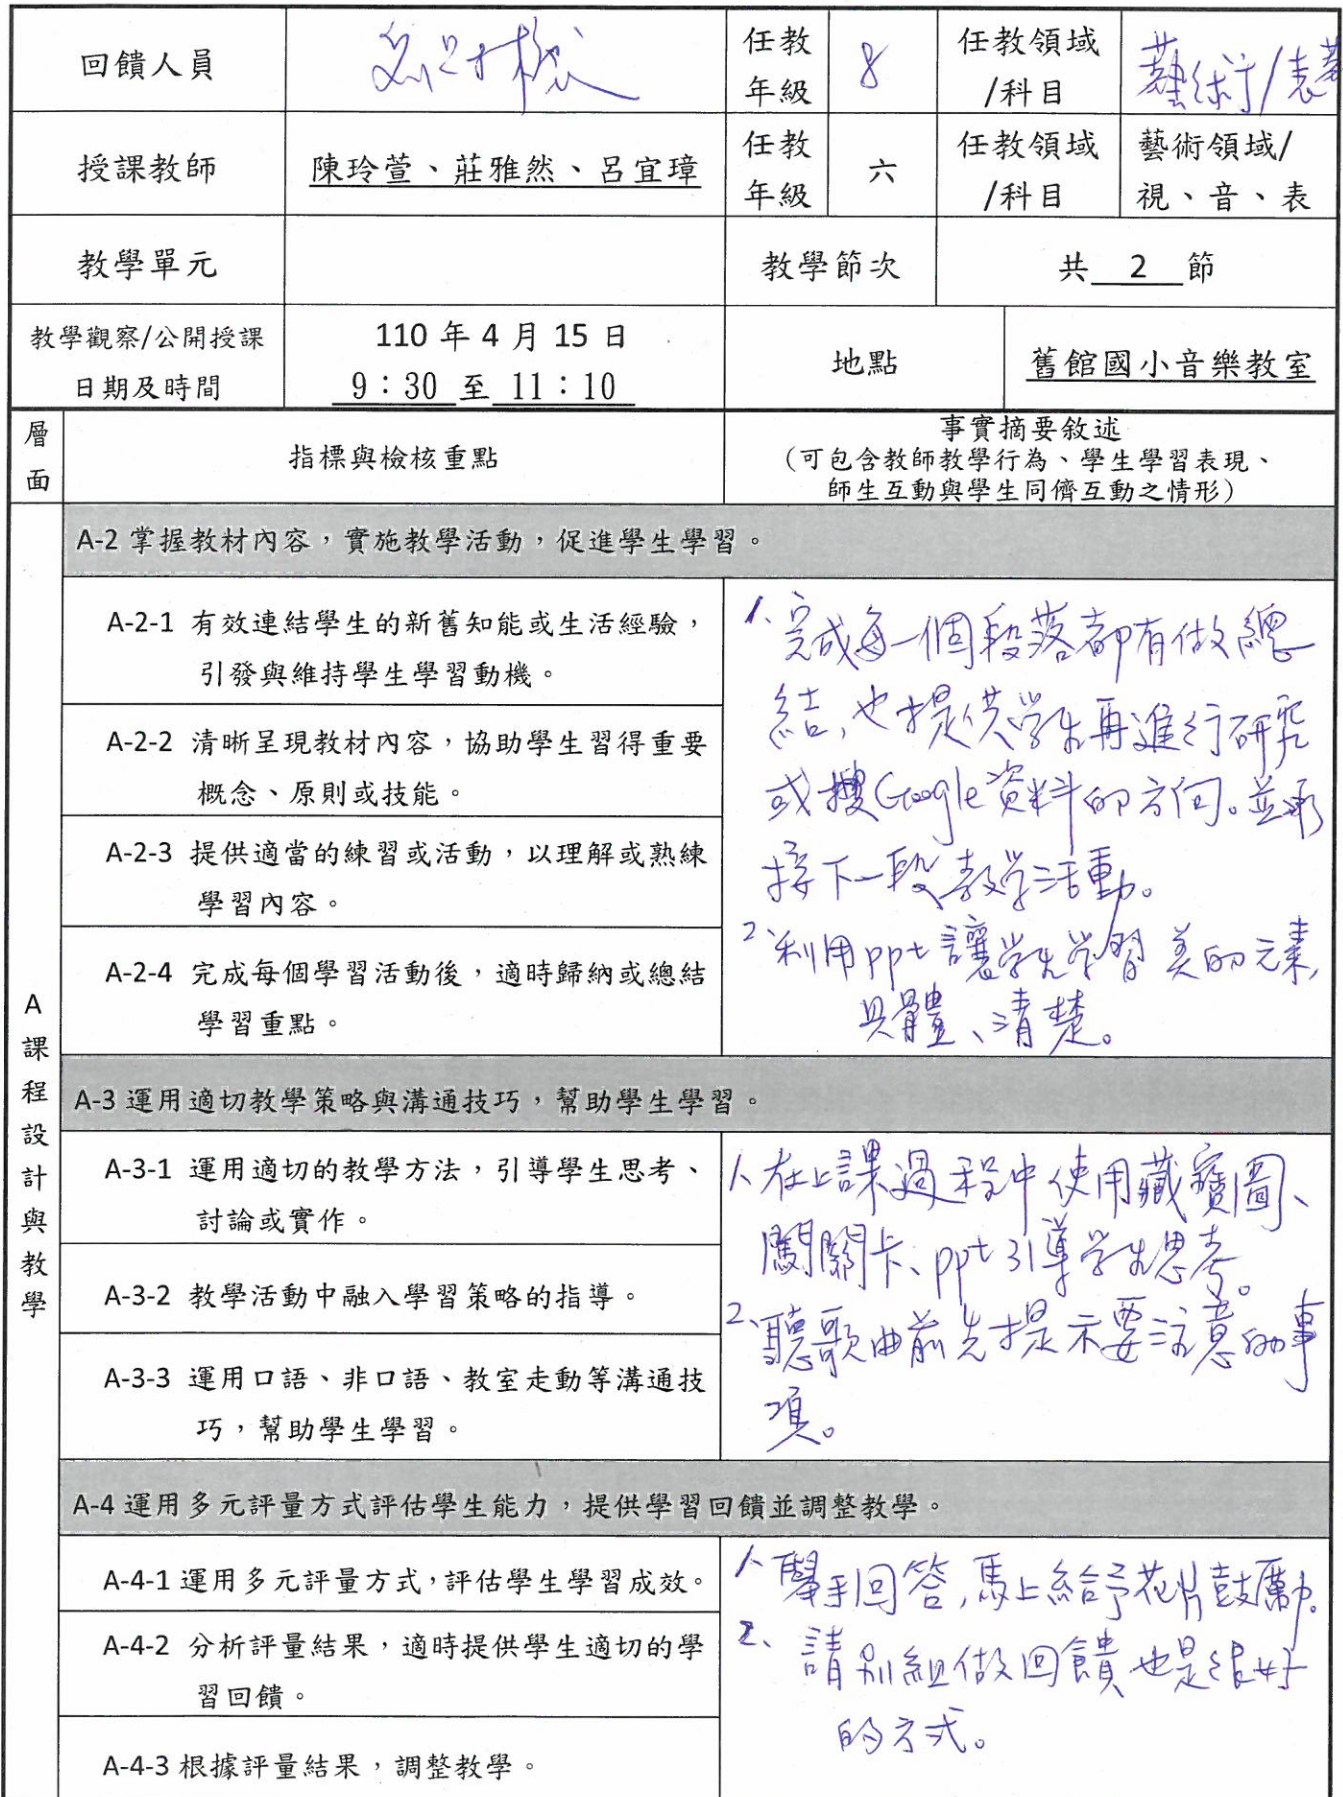 回饋人員
任教年級
8
任教領域/科目
藝術/表藝
授課教師
陳玲萱、莊雅然、呂宜璋
任教年級
六
任教領域/科目
藝術領域/視、音、表
教學單元
教學節次
共 2 節
教學觀察/公開授課
日期及時間
110 年 4 月 15 日
9：30 至 11：10
地點
舊館國小音樂教室
層面
指標與檢核重點
事實摘要敘述
（可包含教師教學行為、學生學習表現、
師生互動與學生同儕互動之情形）
A 課程設計與教學
A-2 掌握教材內容，實施教學活動，促進學生學習。
A-2-1 有效連結學生的新舊知能或生活經驗，
引發與維持學生學習動機。
A-2-2 清晰呈現教材內容，協助學生習得重要
概念、原則或技能。
A-2-3 提供適當的練習或活動，以理解或熟練
學習內容。
A-2-4 完成每個學習活動後，適時歸納或總結
學習重點。
1、完成每一個段落都有做總
結,也提供学生再進行研究
或搜Google資料的方向。並承
接下一段教学活動。
2、利用ppt讓学生学習美的元素,
具體、清楚。
A-3 運用適切教學策略與溝通技巧，幫助學生學習。
A-3-1 運用適切的教學方法，引導學生思考、
討論或實作。
A-3-2 教學活動中融入學習策略的指導。
A-3-3 運用口語、非口語、教室走動等溝通技
巧，幫助學生學習。
1、在上課過程中使用藏寶圖、
闖關卡、ppt引導学生思考。
2、聽歌曲前先提示要注意的事
項。
A-4 運用多元評量方式評估學生能力，提供學習回饋並調整教學。
A-4-1 運用多元評量方式，評估學生學習成效。
A-4-2 分析評量結果，適時提供學生適切的學
習回饋。
A-4-3 根據評量結果，調整教學。
1、舉手回答,馬上給予花片鼓勵。
2、請別組做回饋也是很好
的方式。